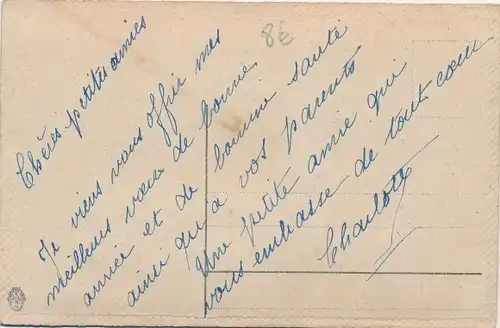 8€
Chères petites amies
Je viens vous offrir mes
meilleurs vœux de bonne
année et de bonne santé
ainsi qu'à vos parents
Une petite amie qui
vous embrasse de tout cœur
Charlotte